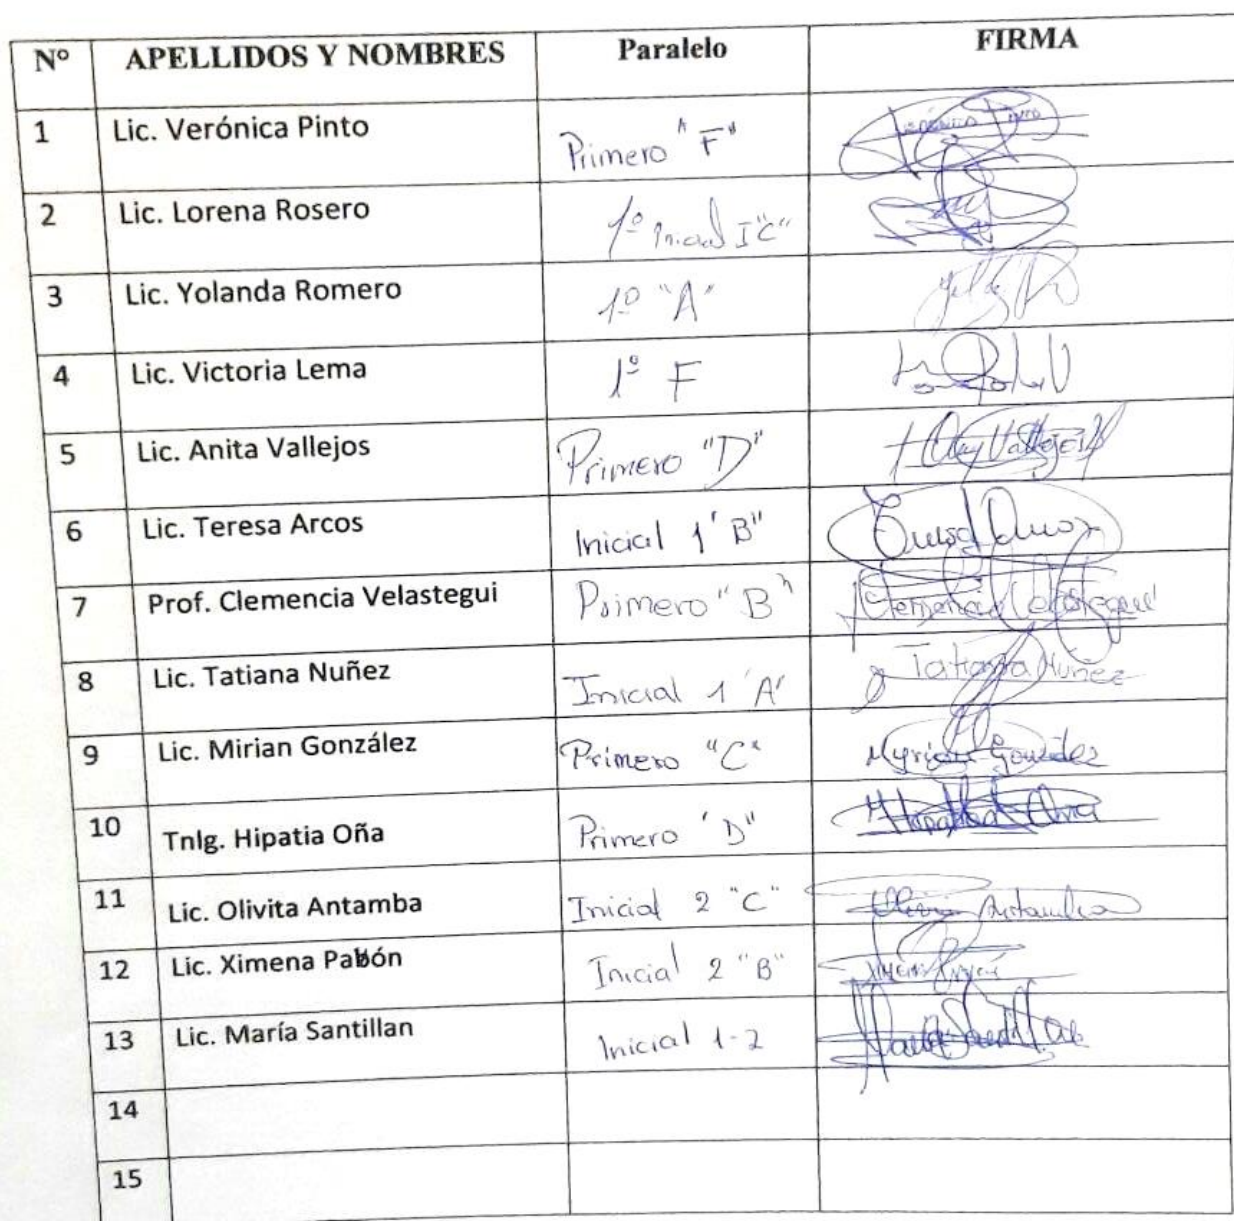 Nº APELLIDOS Y NOMBRES Paralelo FIRMA
1 Lic. Verónica Pinto Primero "F" Verónica Pinto
2 Lic. Lorena Rosero 1º Inicial I "C"
3 Lic. Yolanda Romero 1º "A"
4 Lic. Victoria Lema 1º F
5 Lic. Anita Vallejos Primero "D" Vallejos
6 Lic. Teresa Arcos Inicial 1 'B" Teresa Arcos
7 Prof. Clemencia Velastegui Primero "B" Clemencia Velastegui
8 Lic. Tatiana Nuñez Inicial 1 'A' Tatiana Nuñez
9 Lic. Mirian González Primero "C" Myriam González
10 Tnlg. Hipatia Oña Primero 'D" Hipatia Oña
11 Lic. Olivita Antamba Inicial 2 "C" Olivia Antamba
12 Lic. Ximena Pabón Inicial 2 "B"
13 Lic. María Santillan Inicial 1-2 María Santillan
14
15